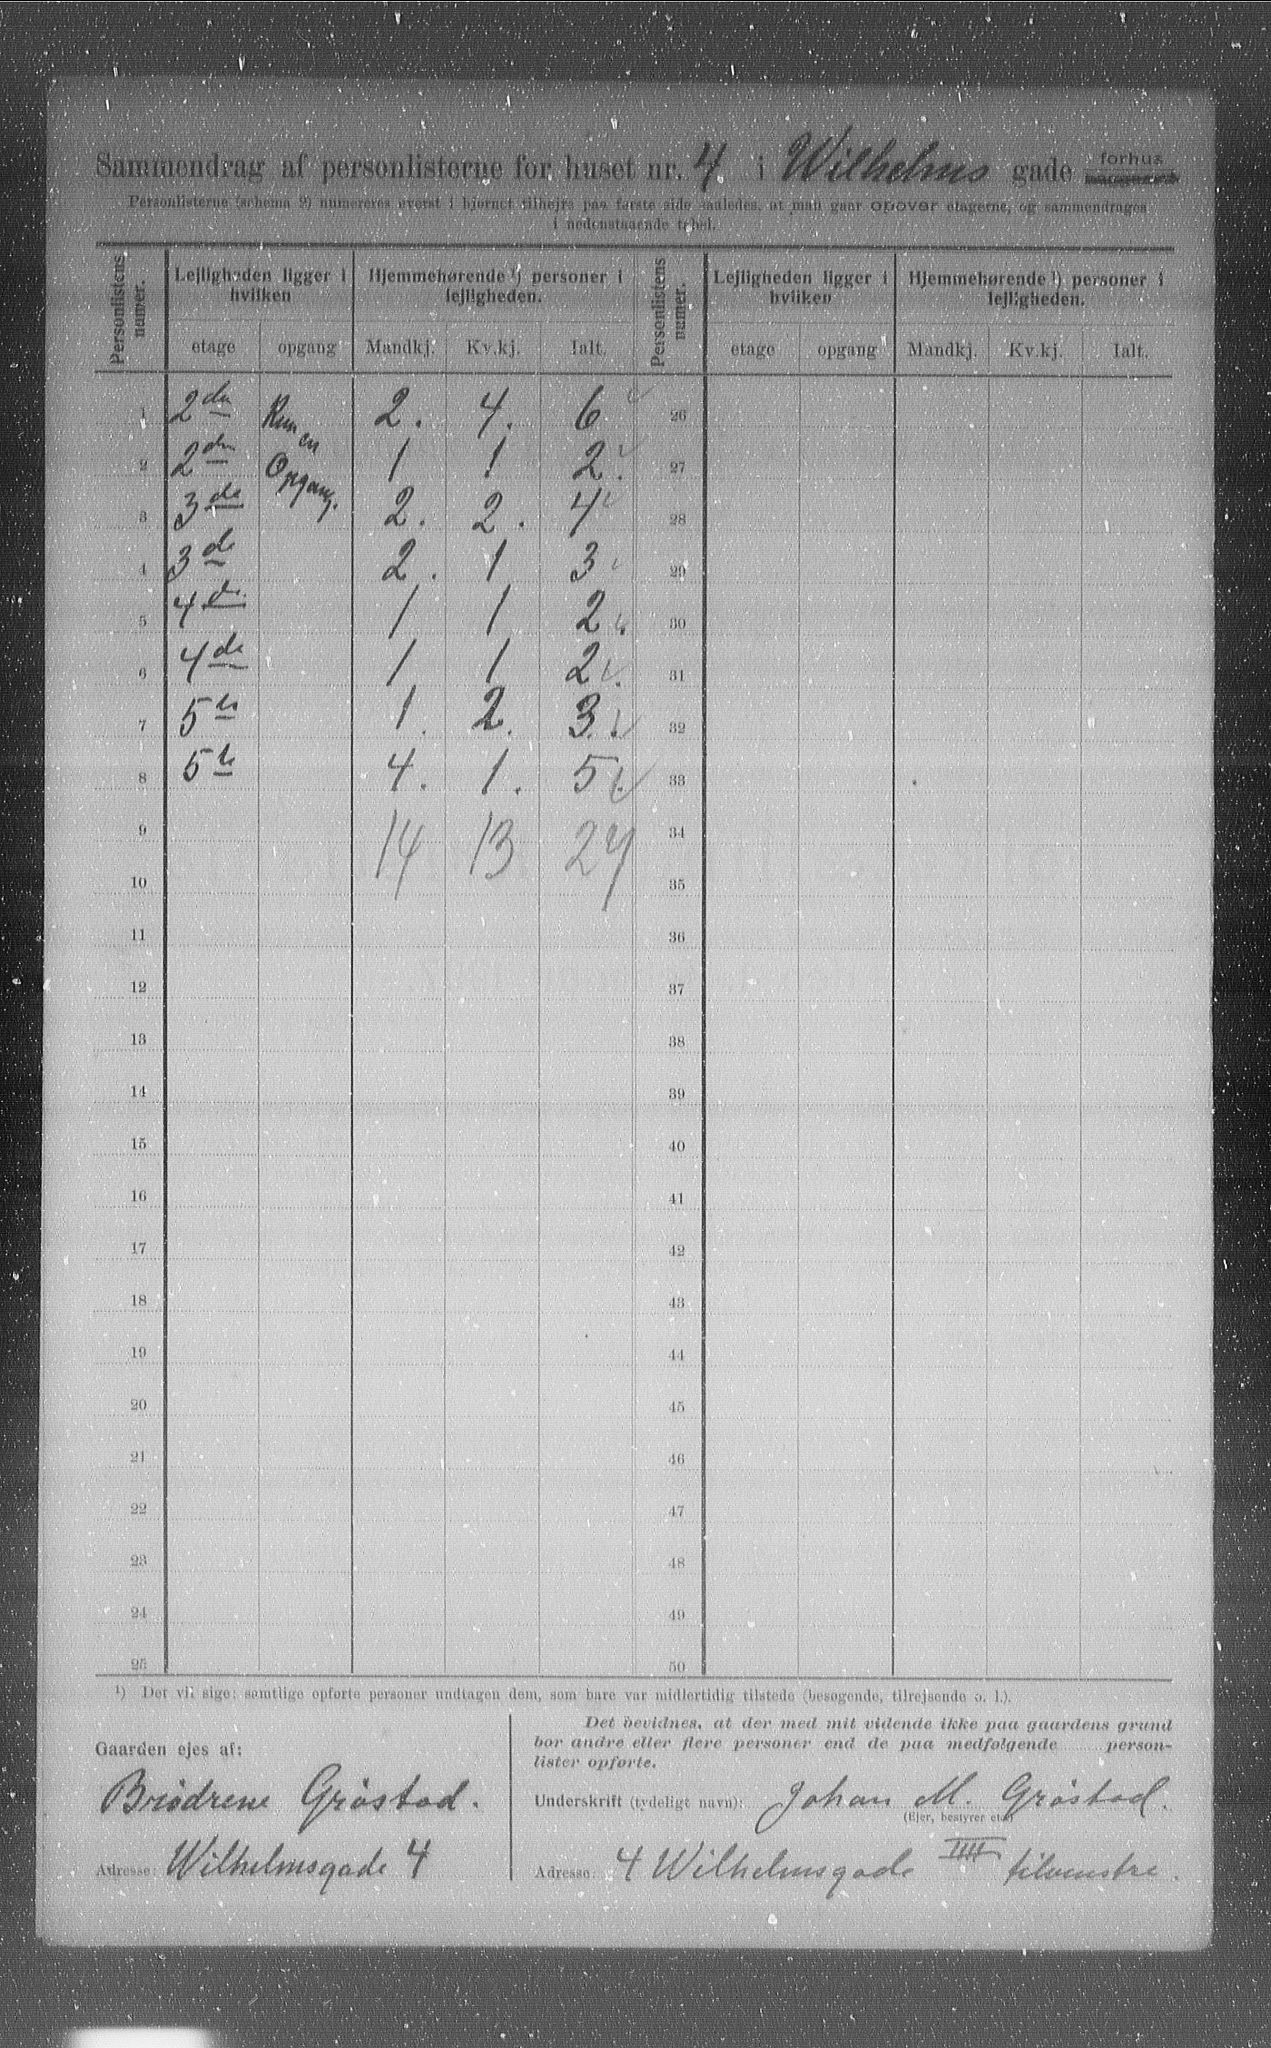 Sammendrag af personlisterne for huset nr. 4 i Wilhelms gade forhus
Personlisterne (schema 2) numereres øverst i hjørnet tilhøjre paa første side saaledes, at man gaar opover etagerne, og sammendrages
i nedenstaaende tabel.
Personlistens numer. Lejligheden ligger i hvilken Hjemmehørende ¹) personer i lejligheden. Personlistens numer. Lejligheden ligger i hvilken Hjemmehørende ¹) personer i lejligheden.
etage opgang Mandkj. Kv.kj. Ialt. etage opgang Mandkj. Kv.kj. Ialt.
1 2den Kun en 2. 4. 6 26
2 2den Opgang. 1 1 2. 27
3 3de 2. 2. 4 28
4 3de 2. 1 3 29
5 4de 1 1 2. 30
6 4de 1 1 2. 31
7 5te 1. 2. 3. 32
8 5te 4. 1. 5. 33
9 14 13 27 34
10 35
11 36
12 37
13 38
14 39
15 40
16 41
17 42
18 43
19 44
20 45
21 46
22 47
23 48
24 49
25 50
¹) Det vil sige: samtlige opførte personer undtagen dem, som bare var midlertidig tilstede (besøgende, tilrejsende o. l.).
Gaarden ejes af:
Brødrene Gröstad.
Adresse: Wilhelmsgade 4
Det bevidnes, at der med mit vidende ikke paa gaardens grund
bor andre eller flere personer end de paa medfølgende person-
lister opførte.
Underskrift (tydeligt navn): Johan M. Gröstad.
(Ejer, bestyrer etc.)
Adresse: 4 Wilhelmsgade IIII tilvenstre.